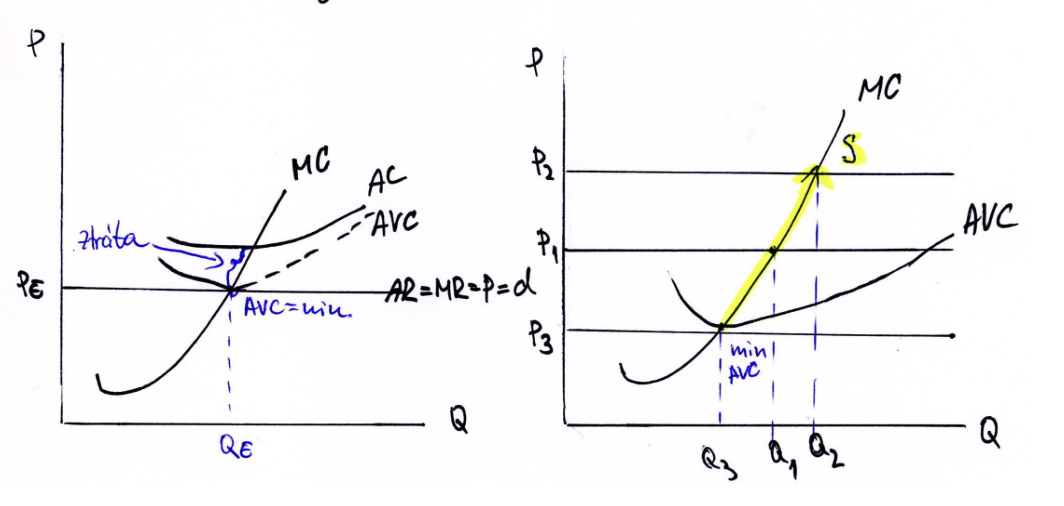 P
MC
AC
AVC
ztráta
PE
AR=MR=P=d
AVC=min.
Q
QE
P
MC
S
P2
P1
AVC
P3
min
AVC
Q3
Q1
Q2
Q